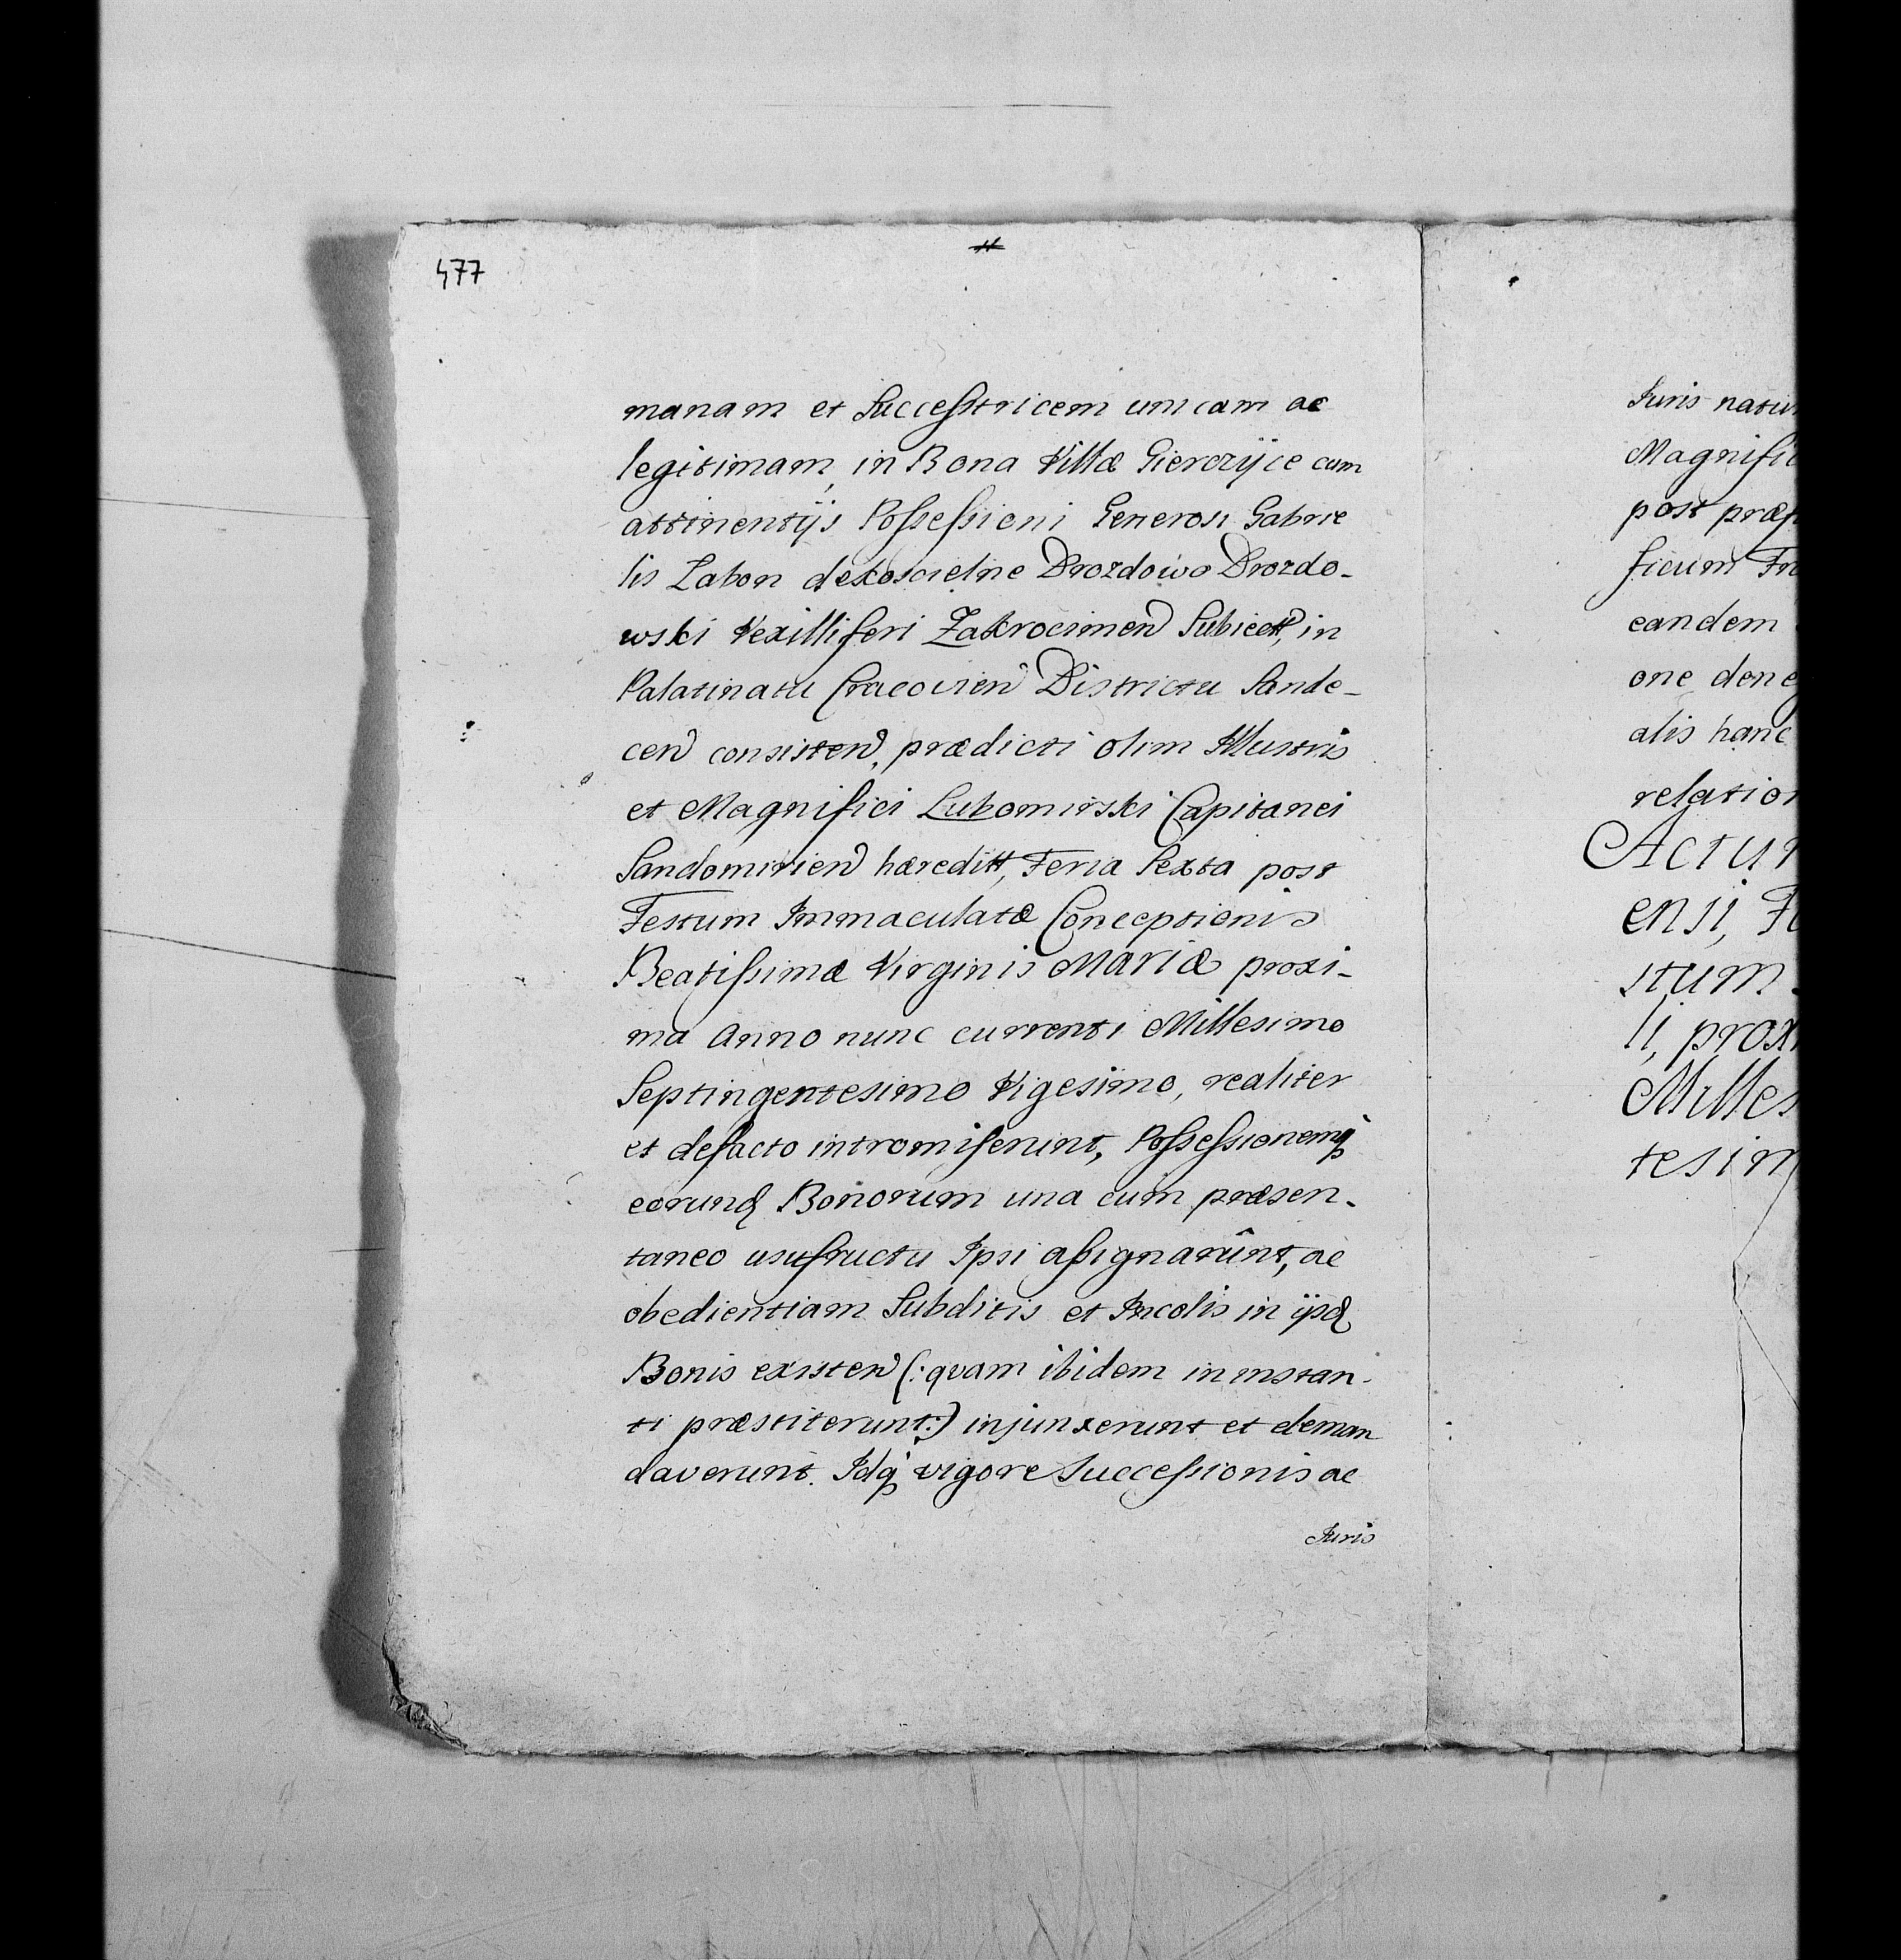 477
manam et Successtricem unicam ac
legitimam, in Bona Villæ Gierczÿce cum
attinentÿs Possessioni Generosi Gabrie
lis Zabon dekoscielne Drozdowo Drozdo-
wski Vexilliferi Zakrocimen Subiectt, in
Palatinatu Cracovien Districtu Sande-
cen consisten, prædicti olim Illustris
et Magnifici Lubomirski Capitanei
Sandomirien hæreditt, Feria Sexta post
Festum Immaculatæ Conceptionis
Beatissimæ Virginis Mariæ proxi-
ma Anno nunc currenti Millesimo
Septingentesimo Vigesimo, realiter
et defacto intromiserunt, Possessionemq
eorund Bonorum una cum præsen-
taneo usufructu Ipsi assignarûnt, ac
obedientiam Subditis et Incolis in ÿsd
Bonis existen (: quam ibidem in instan-
ti præstiterunt :) injunxerunt et deman
daverunt. Idq vigore Successionis ac
Juris
Juris natu
Magnifi
post præ
ficum
eandem
one dene
alis hanc
relation
Actu
ensi, F
stum
li, prox
Milles
tesim